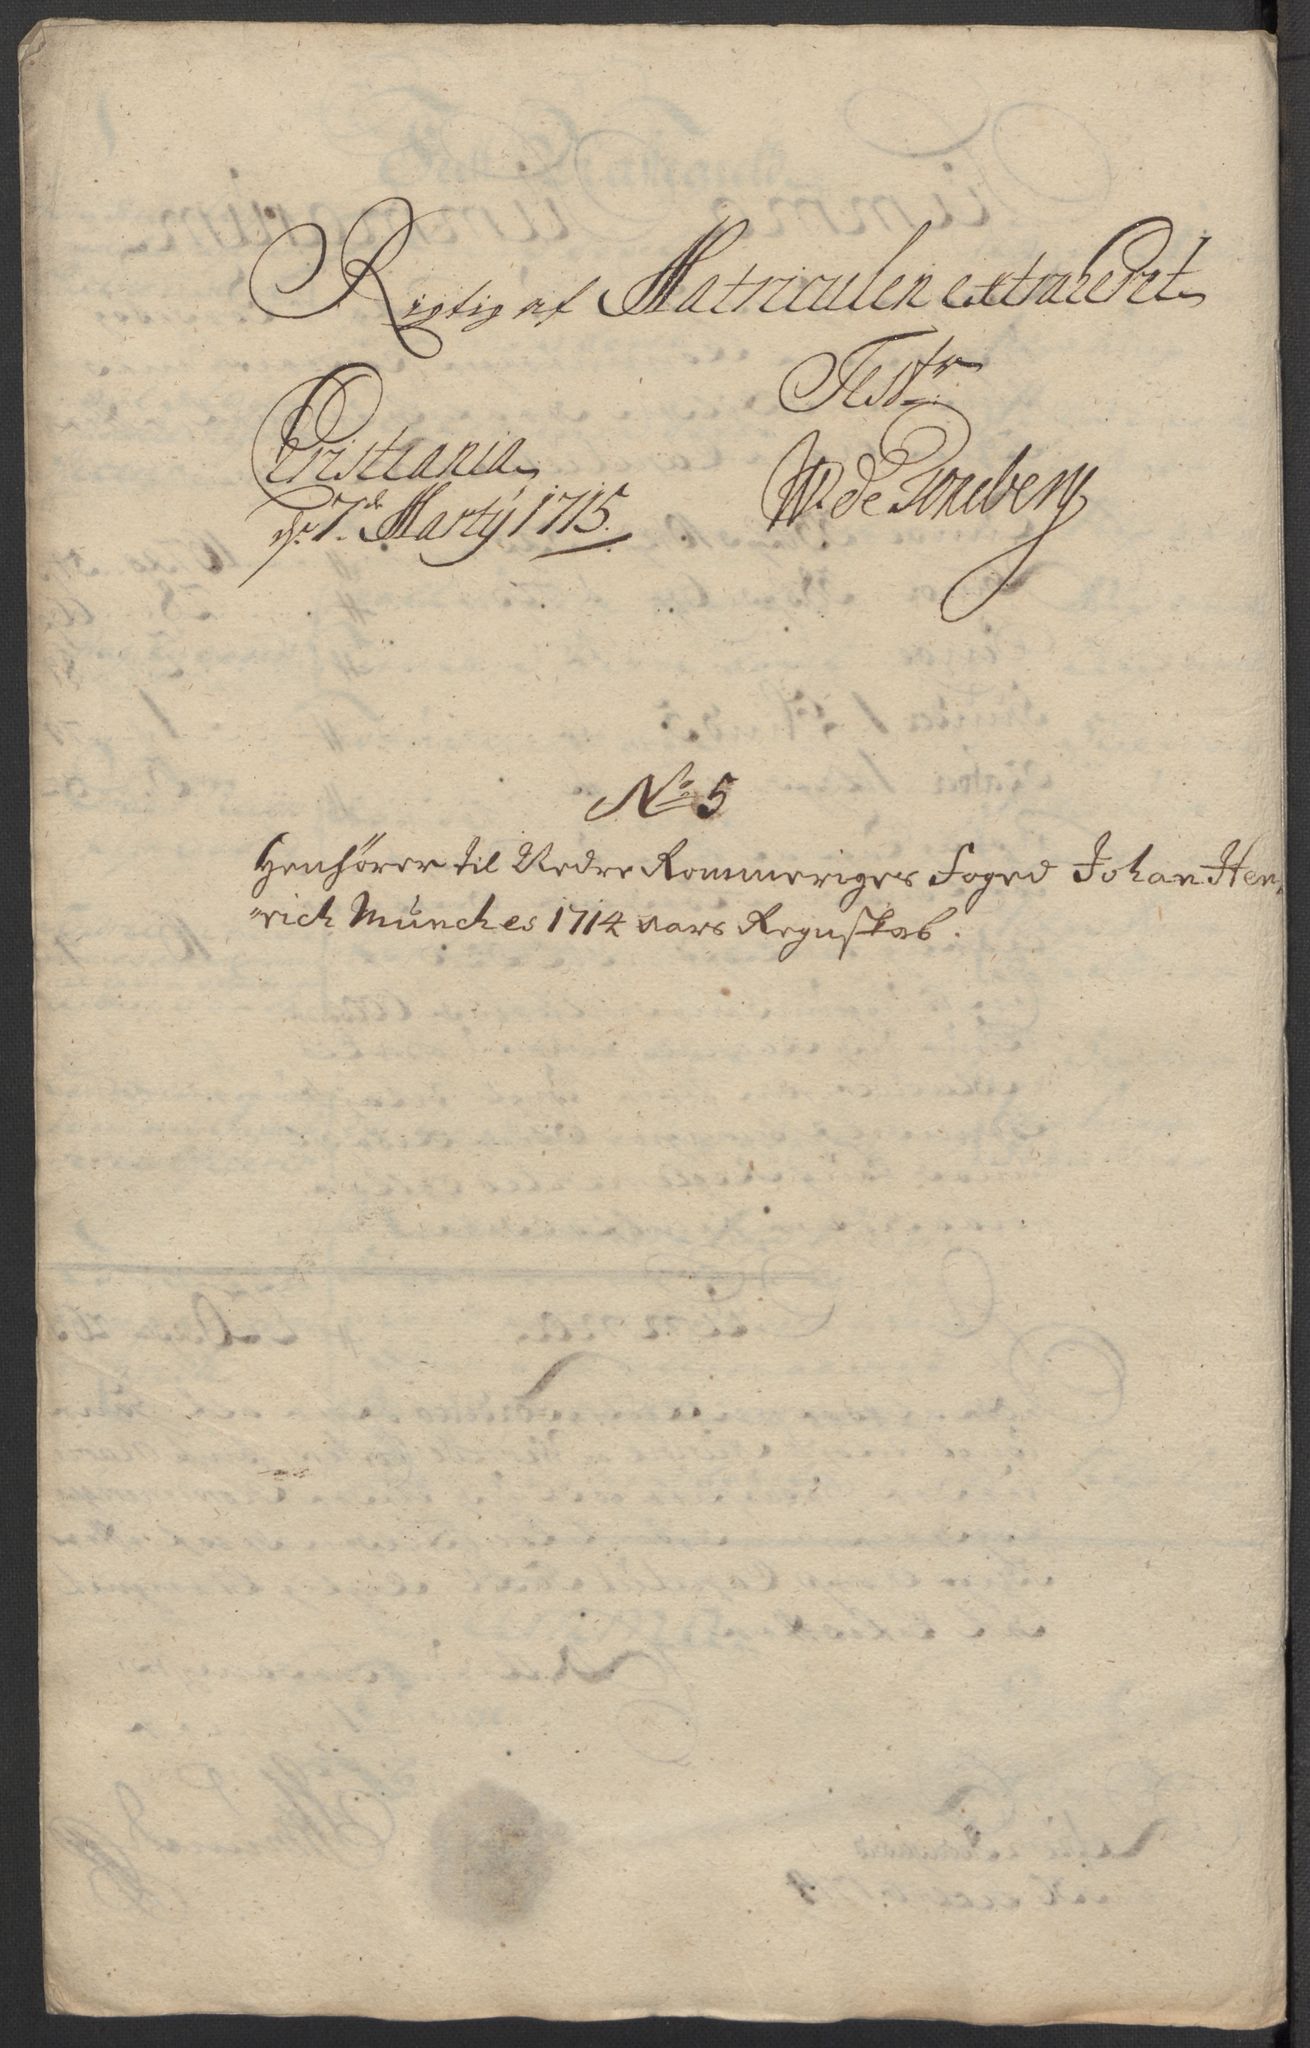 Rigtig af Matriculen extraheret
Test
Cristiania
d. 7de Martij 1715.
W de
No 5
Henhörer til Nedre Rommeriges Foged Johan Hen,
"rich Münches 1714 aars Regnskab.